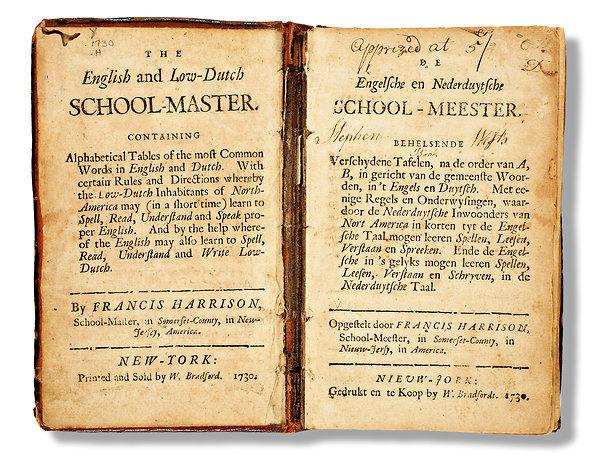 1730
.H
THE
English and Low-Dutch
SCHOOL-MASTER.
CONTAINING
Alphabetical Tables of the most Common
Words in English and Dutch. With
certain Rules and Directions whereby
the Low-Dutch Inhabitants of North-
America may (in a short time) learn to
Spell, Read, Understand and Speak pro-
per English. And by the help where-
of the English may also learn to Spell,
Read, Understand and Write Low-
Dutch.
By FRANCIS HARRISON,
School-Master, in Somerset-County, in New-
Jersey, America.
NEW-YORK:
Printed and Sold by W. Bradford. 1730.
Apprized at 5/
DE
Engelsche en Nederduytsche
SCHOOL-MEESTER.
Stephen
BEHELSENDE
Verschydene Tafelen, na de order van A,
B, in gericht van de gemeenste Woor-
den, in't Engels en Duytsch. Met ee-
nige Regels en Onderwysingen, waar-
door de Nederduytsche Inwoonders van
Nort America in korten tyt de Engel-
sche Taal mogen leeren Spellen, Leesen,
Verstaan en Spreeken. Ende de Engel-
sche in 's gelyks mogen leeren Spellen,
Leesen, Verstaan en Schryven, in de
Nederduytsche Taal.
Opgestelt door FRANCIS HARRISON,
School-Meester, in Somerset-County, in
Nieuw-Jersy, in America.
NIEUW-JORK:
Gedrukt en te Koop by W. Bradfordt. 1730.